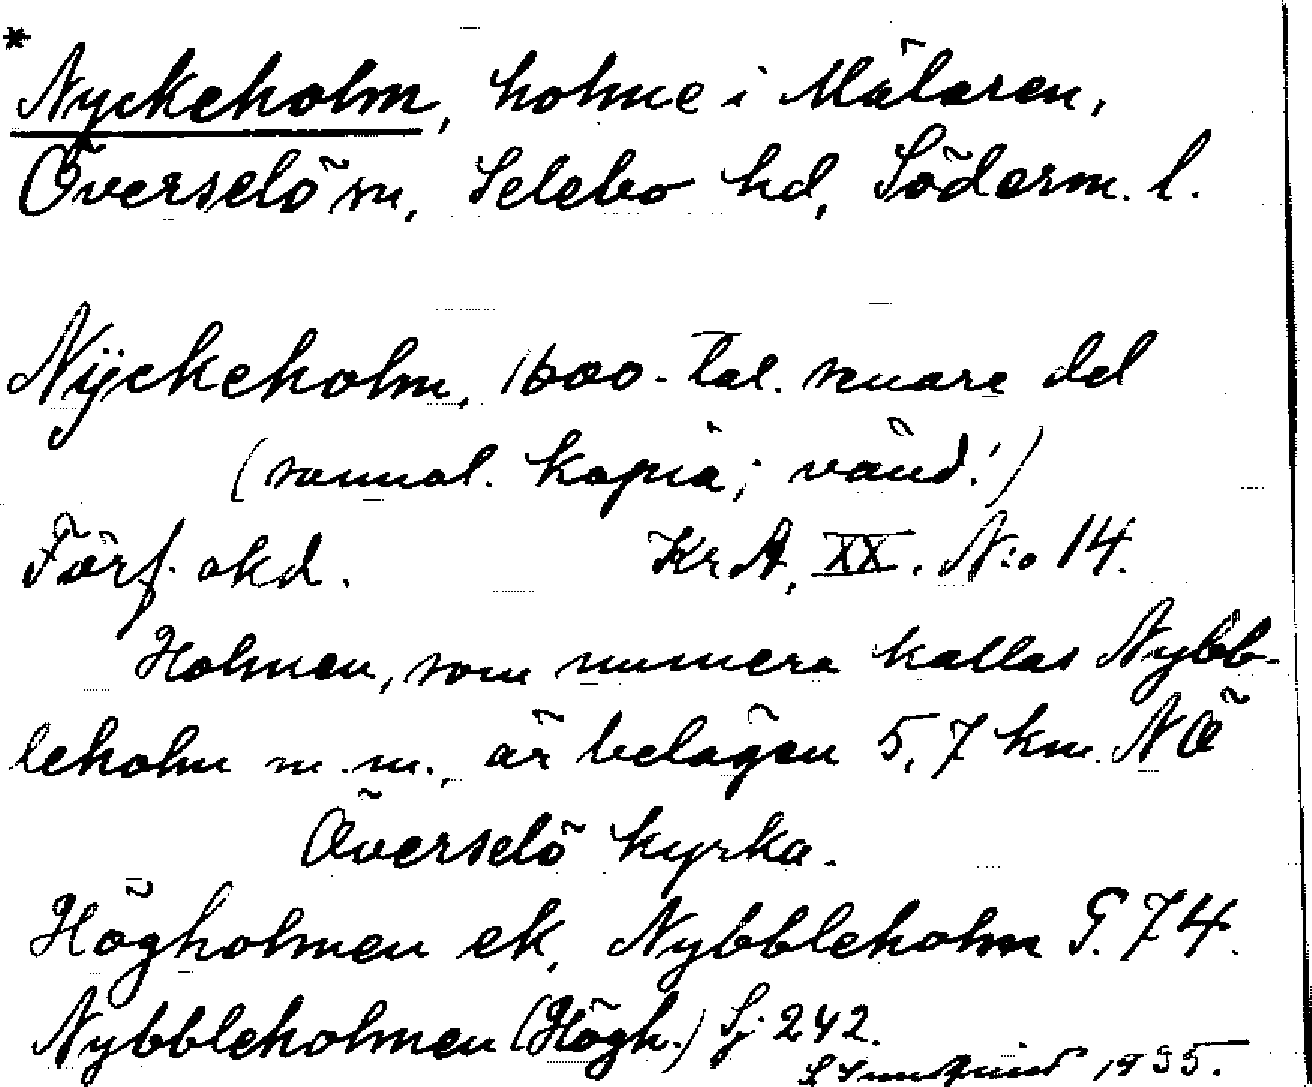 * Nyckeholm, holme i Mälaren,
Överselö sn, Selebo hd, Söderm. l.
Nÿckeholm, 1600-tal. senare del
(sannol. kopia; vänd!)
Förf. okd. KrA, XX. N:o 14.
Holmen, som numera kallas Nybb-
leholm m.m., är belägen 5,7 km. NÖ
Överselö kyrka.
Högholmen ek, Nybbleholm G. 74.
Nybbleholmen (Högh.) Sj 242.
1935.